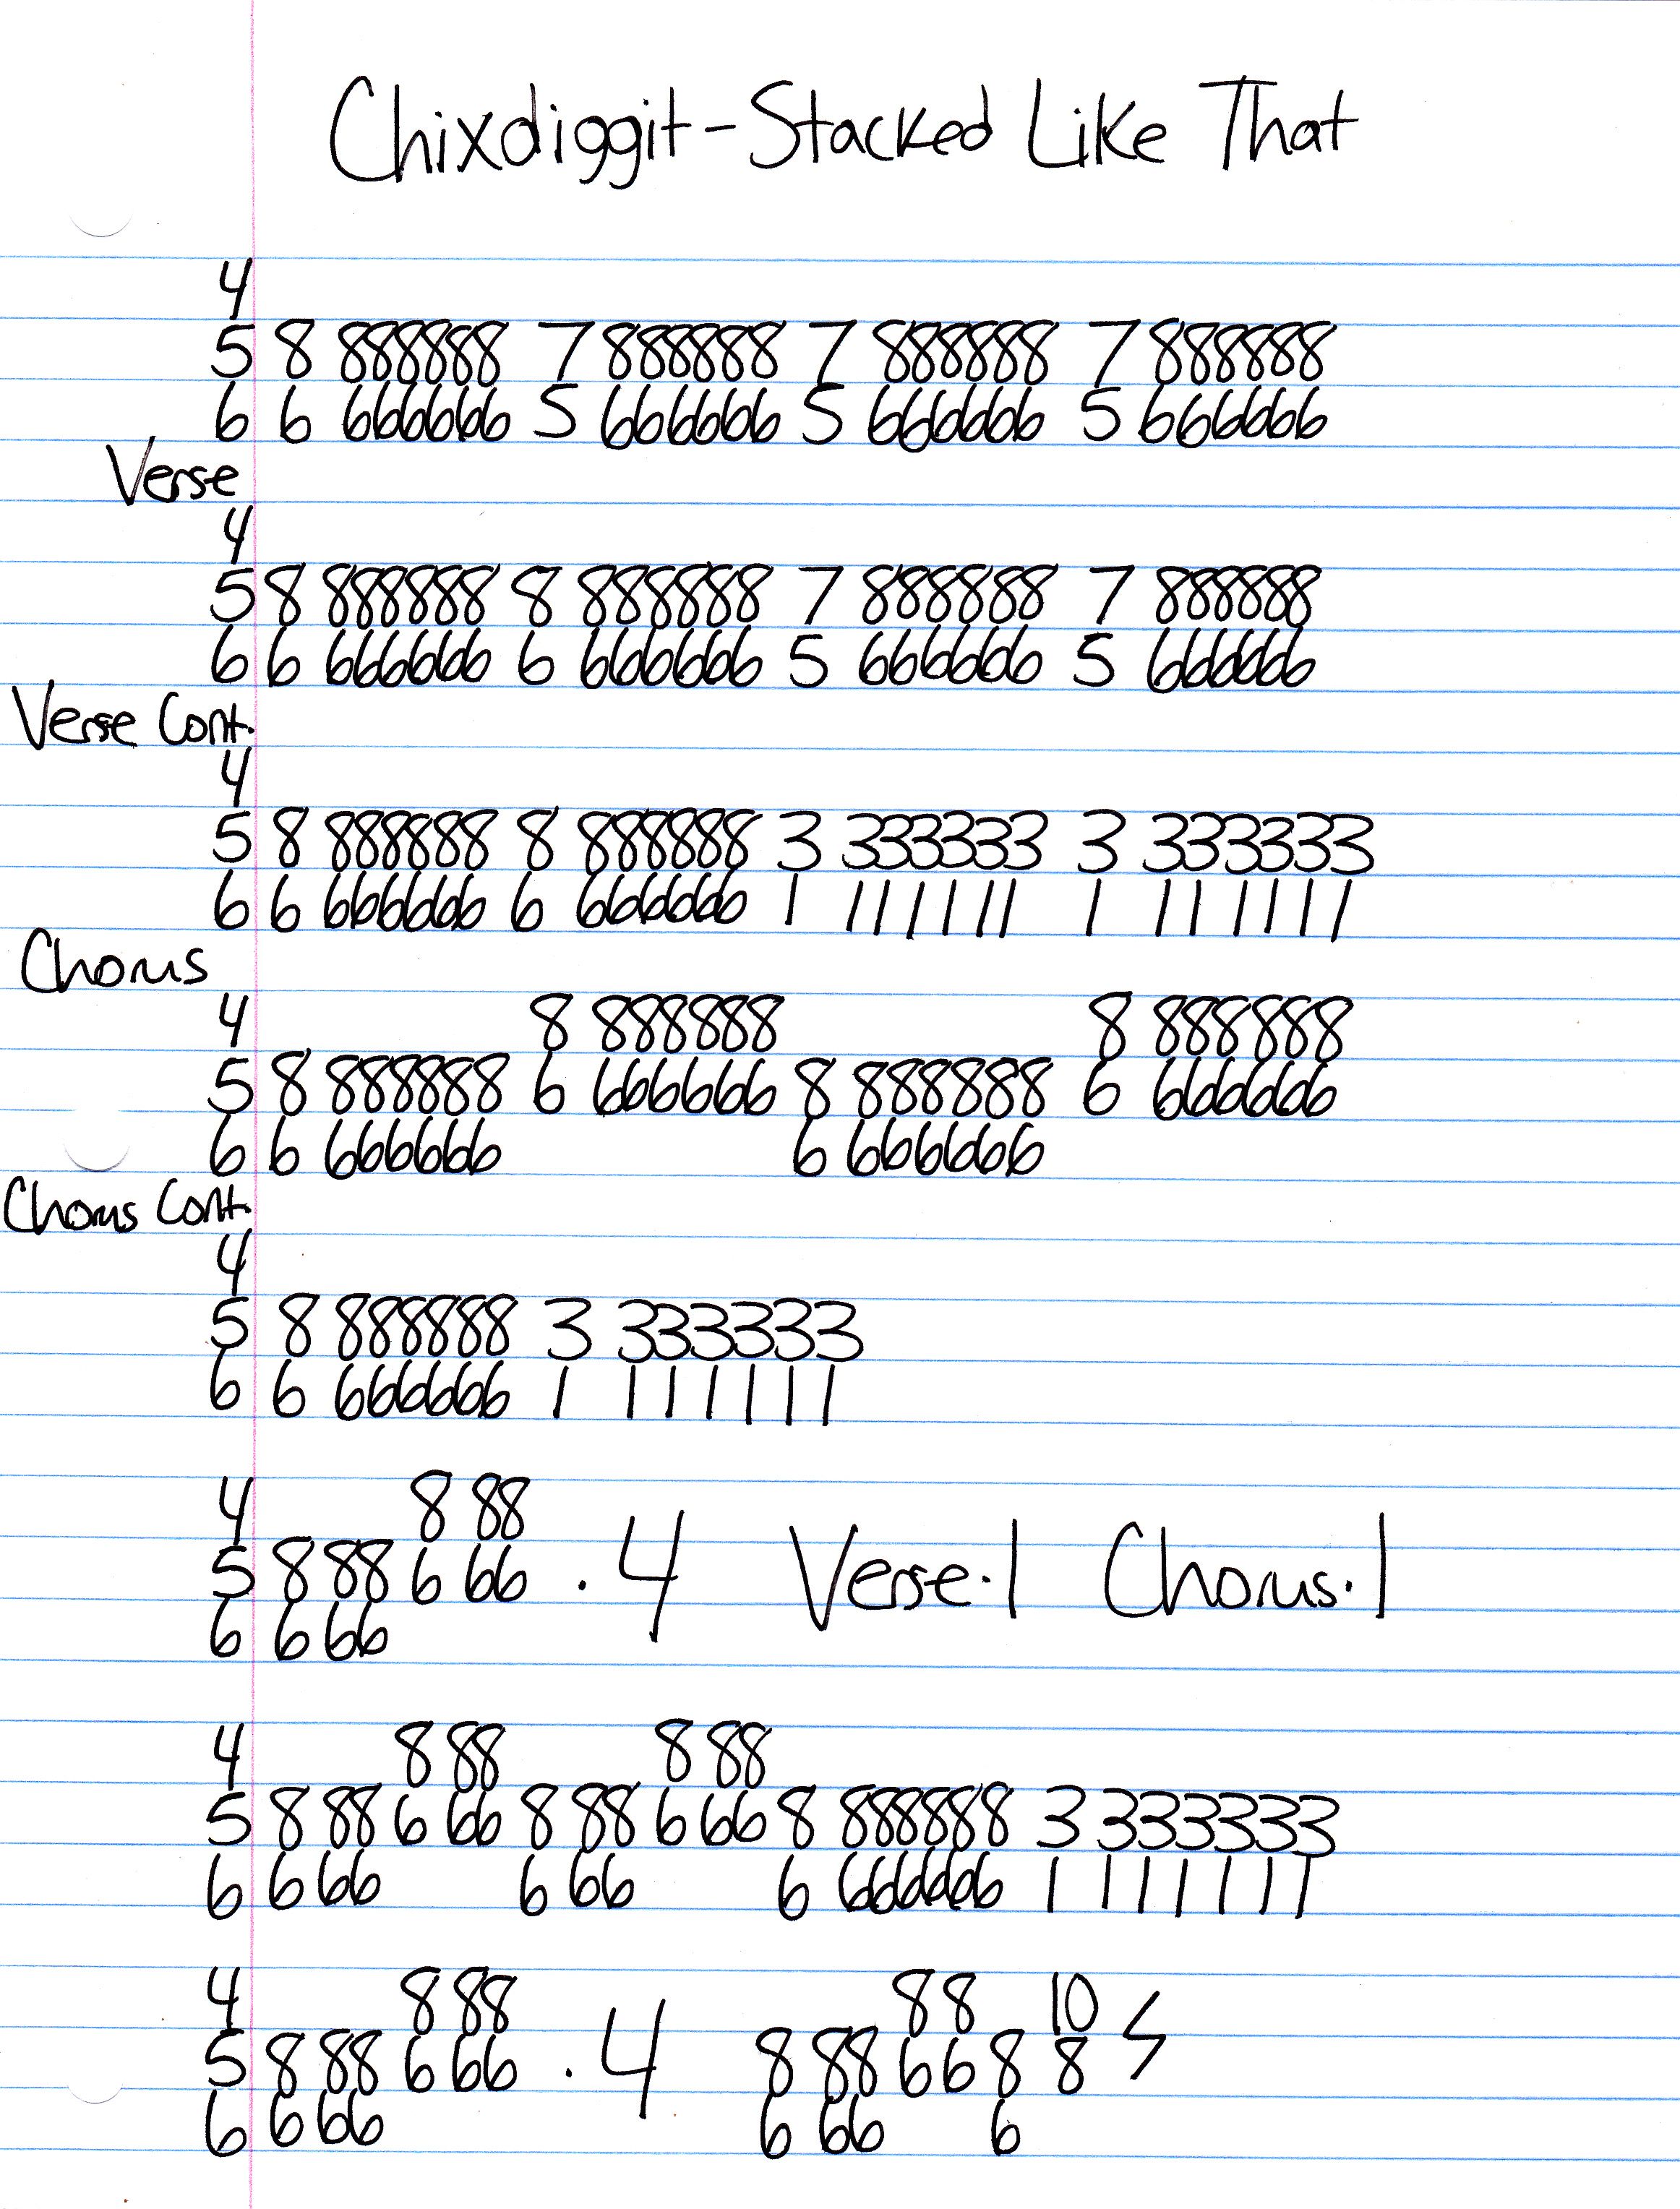 Chixdiggit-Stacked Like That
4
5 8 888888 7 888888 7 888888 7 888888
6 6 666666 5 666666 5 666666 5 666666
Verse
4
5 8 888888 8 888888 7 888888 7 888888
6 6 666666 6 666666 5 666666 5 666666
Verse Cont.
4
5 8 888888 8 888888 3 333333 3 333333
6 6 666666 6 666666 1 111111 1 111111
Chorus
4 8 888888 8 888888
5 8 888888 6 666666 8 888888 6 666666
6 6 666666 6 666666
Chorus Cont.
4
5 8 888888 3 333333
6 6 666666 1 111111
4 8 88
5 8 88 6 66 . 4 Verse.1 Chorus.1
6 6 66
4 8 88 8 88
5 8 88 6 66 8 88 6 66 8 888888 3 333333
6 6 66 6 66 6 666666 1 111111
4 8 88 8 8 10
5 8 88 6 66 . 4 8 88 6 6 8 8
6 6 66 6 66 6